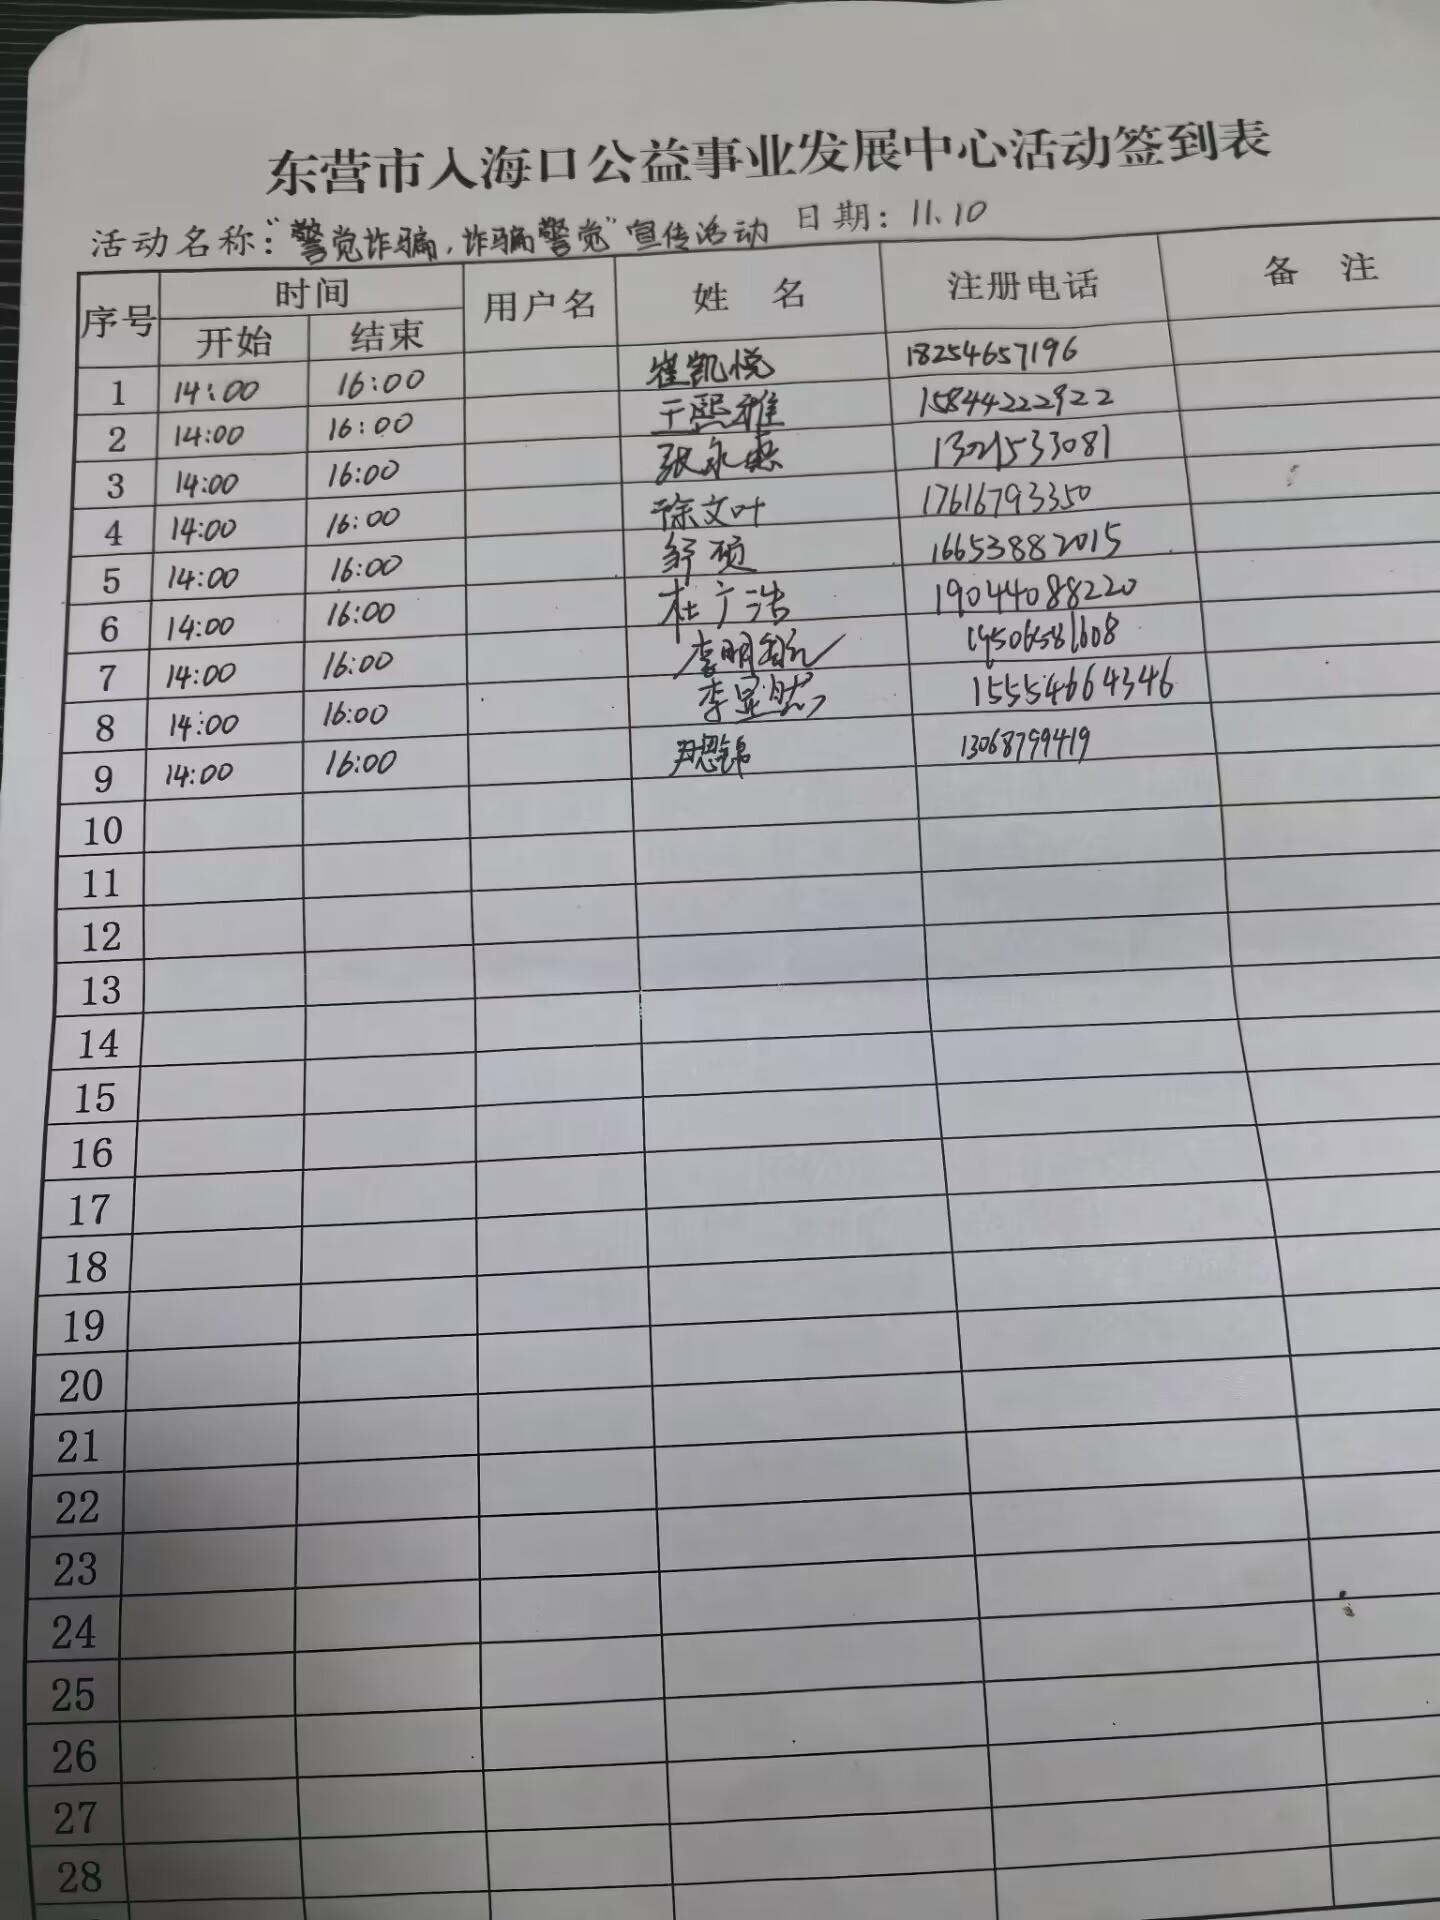 东营市入海口公益事业发展中心活动签到表
活动名称:“警觉诈骗,诈骗警觉”宣传活动 日期: 11.10
序号 时间 用户名 姓 名 注册电话 备 注
开始 结束
1 14:00 16:00 崔凯悦 18254657196
2 14:00 16:00 王熙雅 15844222922
3 14:00 16:00 张永惠 13021533081
4 14:00 16:00 徐文叶 17616793350
5 14:00 16:00 邹硕 16653882015
6 14:00 16:00 杜广浩 19044088220
7 14:00 16:00 李明 19506581608
8 14:00 16:00 李显然 15554664346
9 14:00 16:00 尹思锦 13068799419
10
11
12
13
14
15
16
17
18
19
20
21
22
23
24
25
26
27
28